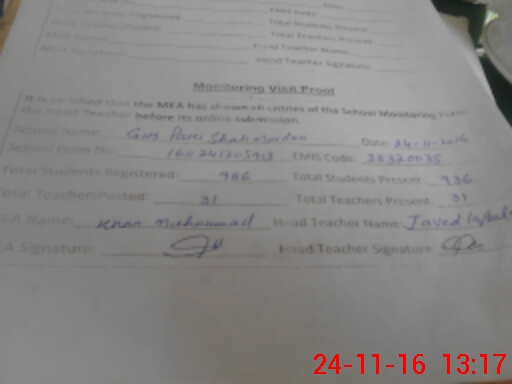 Total Students Present:
Total Teachers Present:
Head Teacher Name:
MEA Signature: Head Teacher Signature:
Monitoring Visit Proof
It is certified that the MEA has shown all entries of the School Monitoring Form
the Head Teacher before its online submission.
School Name: Shah Mardan Date: 24-11-2016
School Form No: EMIS Code: 38320035
Total Students Registered: 986 Total Students Present 936
Total Teachers Posted: 31 Total Teachers Present 31
MEA Name: Khan Muhammad Head Teacher Name: Javed Iqbal
EA Signature: Head Teacher Signature:
24-11-16 13:17